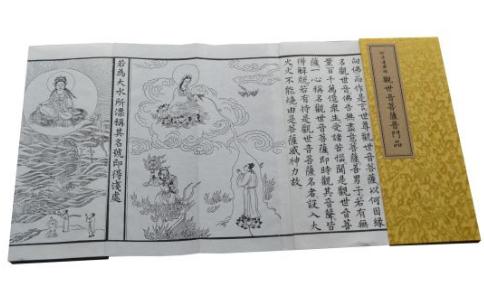 觀世音菩薩普門品
向佛而作是言世尊觀世音菩薩以何因緣
名觀世音佛告無盡意菩薩善男子若有無
量百千萬億眾生受諸苦惱聞是觀世音菩
薩一心稱名觀世音菩薩即時觀其音聲皆
得解脫若有持是觀世音菩薩名者設入大
火火不能燒由是菩薩威神力故
若為大水所漂稱其名號即得淺處